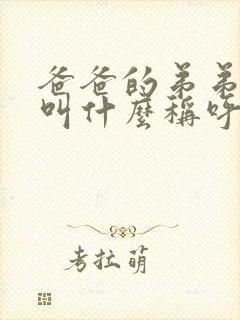 爸爸的弟弟
叫什麼稱呼
考拉萌